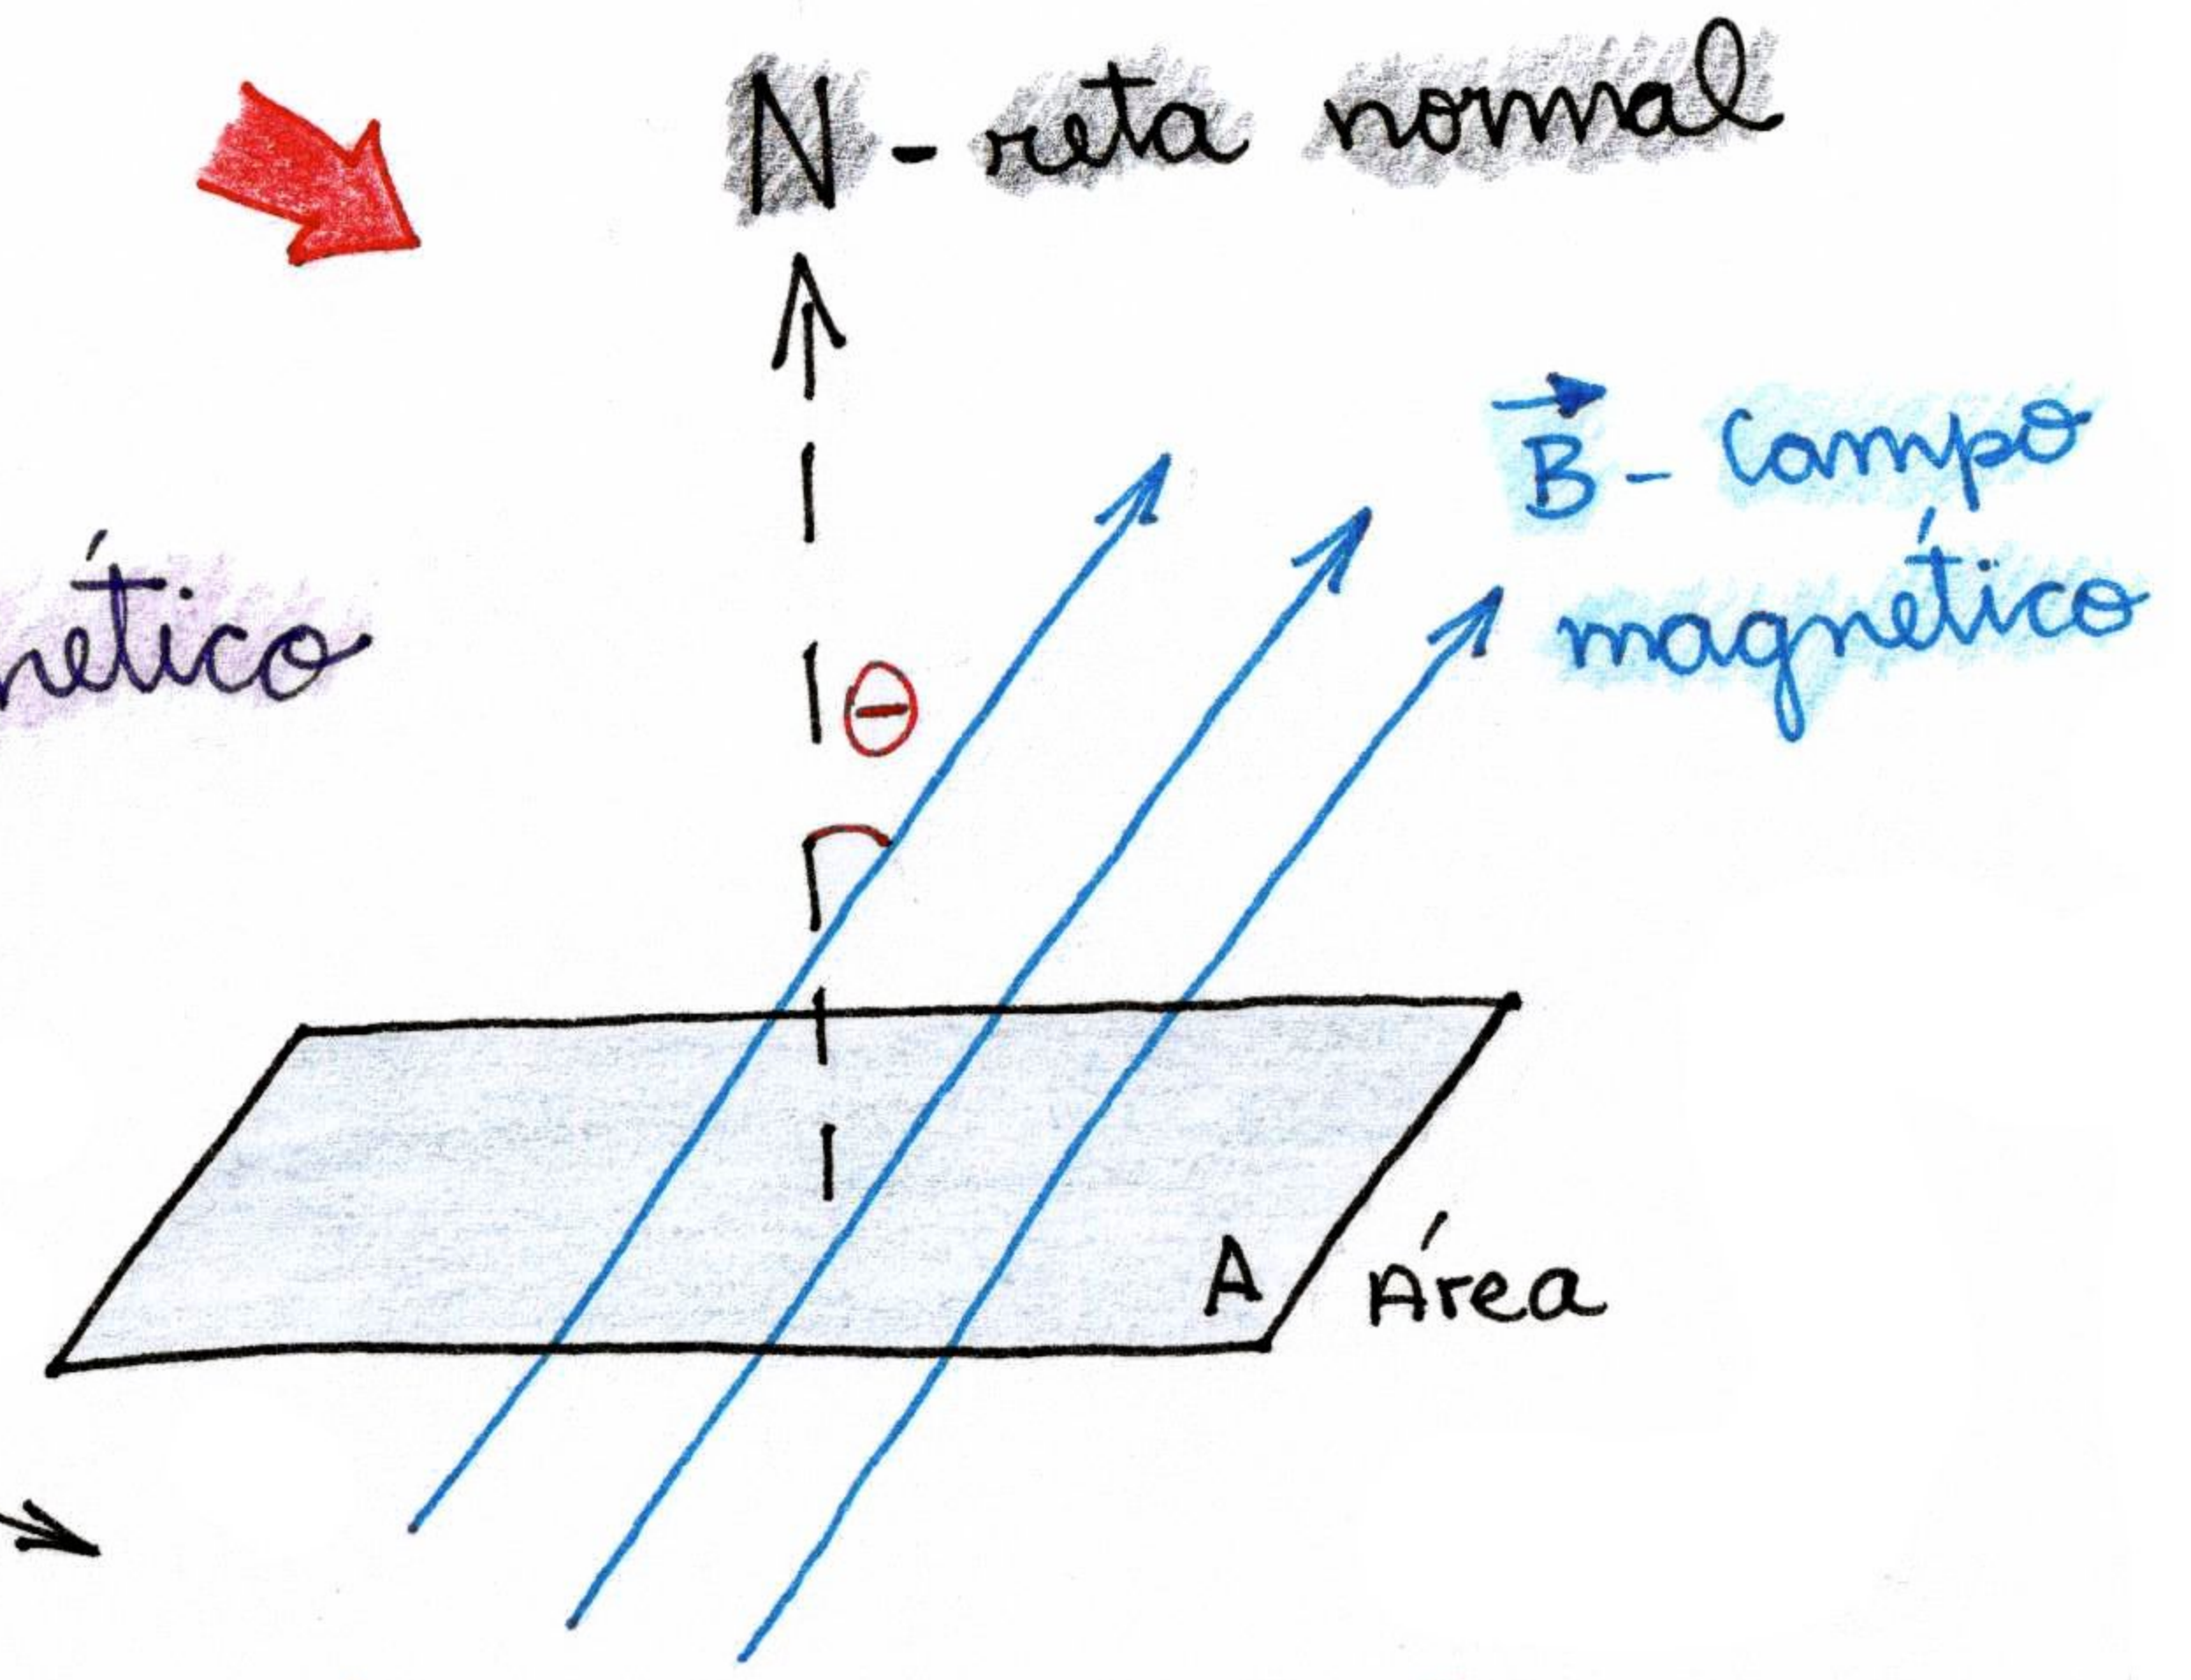 N - reta normal
B - Campo
magnético
nético
θ
A Área